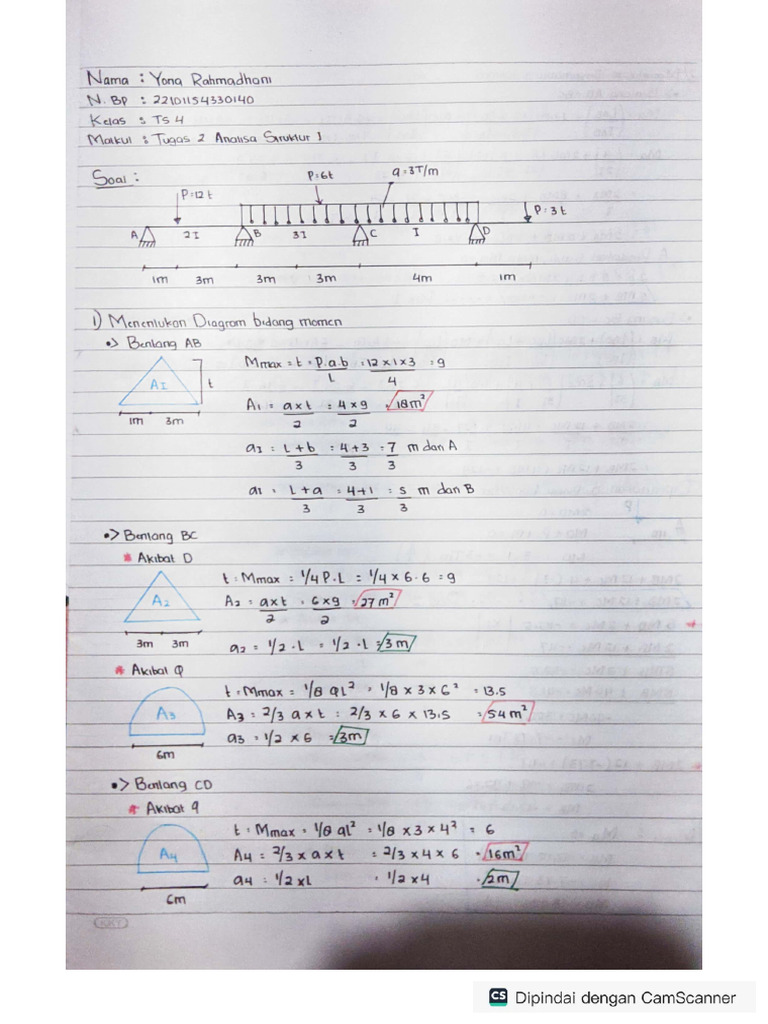 Nama : Yona Rahmadhani
N. BP : 22101154330140
Kelas : TS 4
Matkul : Tugas 2 Analisa Struktur 1
Soal :
P=12 t
P=6t
q=3T/m
P=3t
A 2I B 3I C I D
1m 3m 3m 3m 4m 1m
1) Menentukan Diagram bidang momen
•> Bentang AB
A1 t
1m 3m
Mmax = t = P.a.b / L = 12 x 1 x 3 / 4 = 9
A1 = a x t / 2 = 4 x 9 / 2 = 18m²
a1 = L + b / 3 = 4 + 3 / 3 = 7 / 3 m dari A
a1 = L + a / 3 = 4+1 / 3 = 5 / 3 m dari B
•> Bentang BC
* Akibat D
A2
3m 3m
t = Mmax = 1/4 P.L = 1/4 x 6.6 = 9
A2 = a x t / 2 = 6 x 9 / 2 = 27 m²
a2 = 1/2 . L = 1/2 . L = 3m
* Akibat Q
A3
6m
t = Mmax = 1/8 ql² = 1/8 x 3 x 6² = 13.5
A3 = 2/3 a x t = 2/3 x 6 x 13.5 = 54 m²
a3 = 1/2 x 6 = 3m
•> Bentang CD
* Akibat q
A4
6m
t = Mmax = 1/8 ql² = 1/8 x 3 x 4² = 6
A4 = 2/3 x a x t = 2/3 x 4 x 6 = 16m²
a4 = 1/2 x L = 1/2 x 4 = 2m
CS Dipindai dengan CamScanner